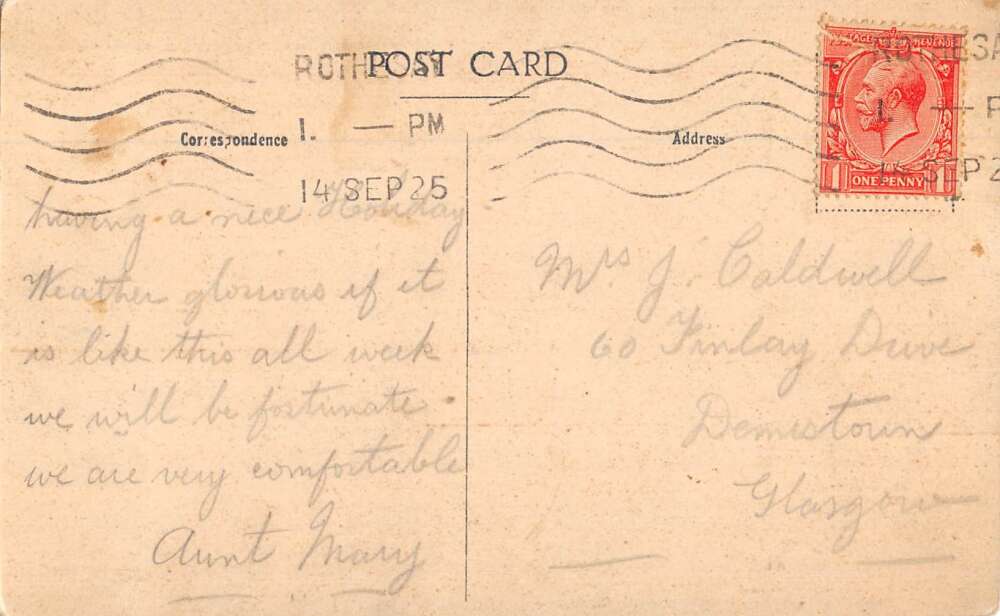 POST CARD
ROTHESAY
1. — PM
14 SEP 25
Correspondence
having a nice Holiday
Weather glorious if it
is like this all week
we will be fortunate
we are very comfortable
Aunt Mary
Address
POSTAGE REVENUE
1 ONE PENNY 1
ROTHESA
1 — P
14 SEP 2
Mrs J. Caldwell
60 Finlay Drive
Dennistoun
Glasgow